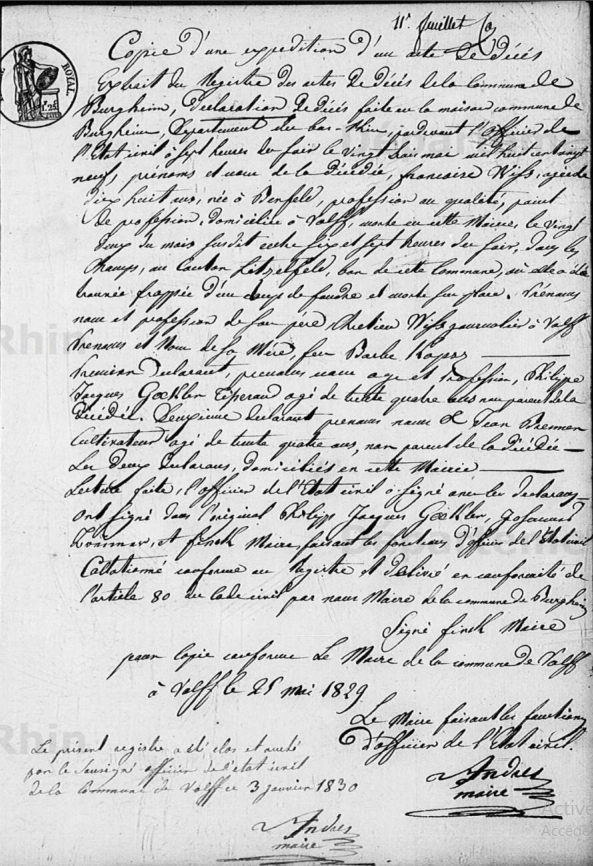 11e Juillet
Copie d'une expedition d'un acte de Décès
Extrait du Registre des actes de Décès de la Commune de
Burgheim, Déclaration de décès faite en la maison commune de
Burgheim, Département du bas-Rhin, pardevant l'officier de
l'Etat civil à Sept heures du soir le vingt trois mai mil huit cent vingt
neuf, prénoms et nom de la Décédée, francoise Wiss, agée de
dix huit ans, née à Benfeld, profession ou qualité, point
de profession, domiciliée à Valff, morte en cette Mairie, le vingt
deux du mois susdit entre six et sept heures du soir, dans les
champs, au Canton Litzelfeld, ban de cette Commune, où elle a été
trouvée frappée d'un coup de foudre et morte sur place. Prénoms
nom et profession de son père Chretien Wiss journalier à Valff
Prenoms et Nom de sa Mère, feu Barbe
Premier Declarant prenoms nom age et Profession, Philippe
Jacques Goekler agé de trente quatre ans non parent de la
Décédée. Deuxieme declarant prenoms nom & Jean
Cultivateur agé de trente quatre ans, non parent de la décédée
Les Deux Declarans, domiciliés en cette Mairie
Lecture faite, l'officier de l'Etat civil a signé avec les declarans
ont signé dans l'original Philipp Jacques Goekler,
et finck Maire, faisant les fonctions d'officier de l'Etat civil
Collationné conforme au Registre et délivré en conformité de
l'article 80 du Code civil par nous Maire de la commune de Burgheim
Signé finck Maire
pour Copie conforme Le Maire de la commune de Valff
à Valff le 25 mai 1829
Le Maire faisant les fonctions
d'officier de l'état civil.
Andres
maire
Le présent registre a été clos et areté
par le Sousigné officier de l'etat civil
de la Commune de Valff ce 3 janvier 1830
Andres
maire
ROYAL
Rhin
Départeme
Rhin
Active
Accéde